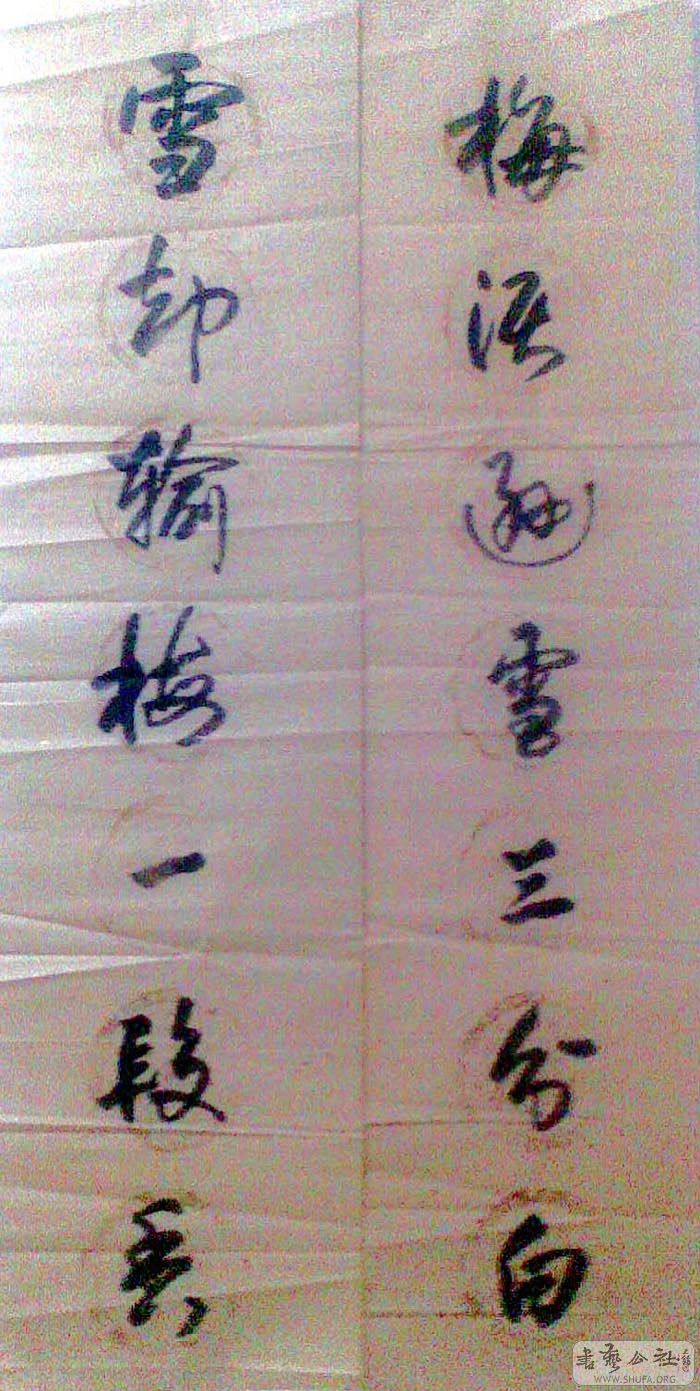 梅須遜雪三分白
雪却輸梅一段香
書藝公社
WWW.SHUFA.ORG